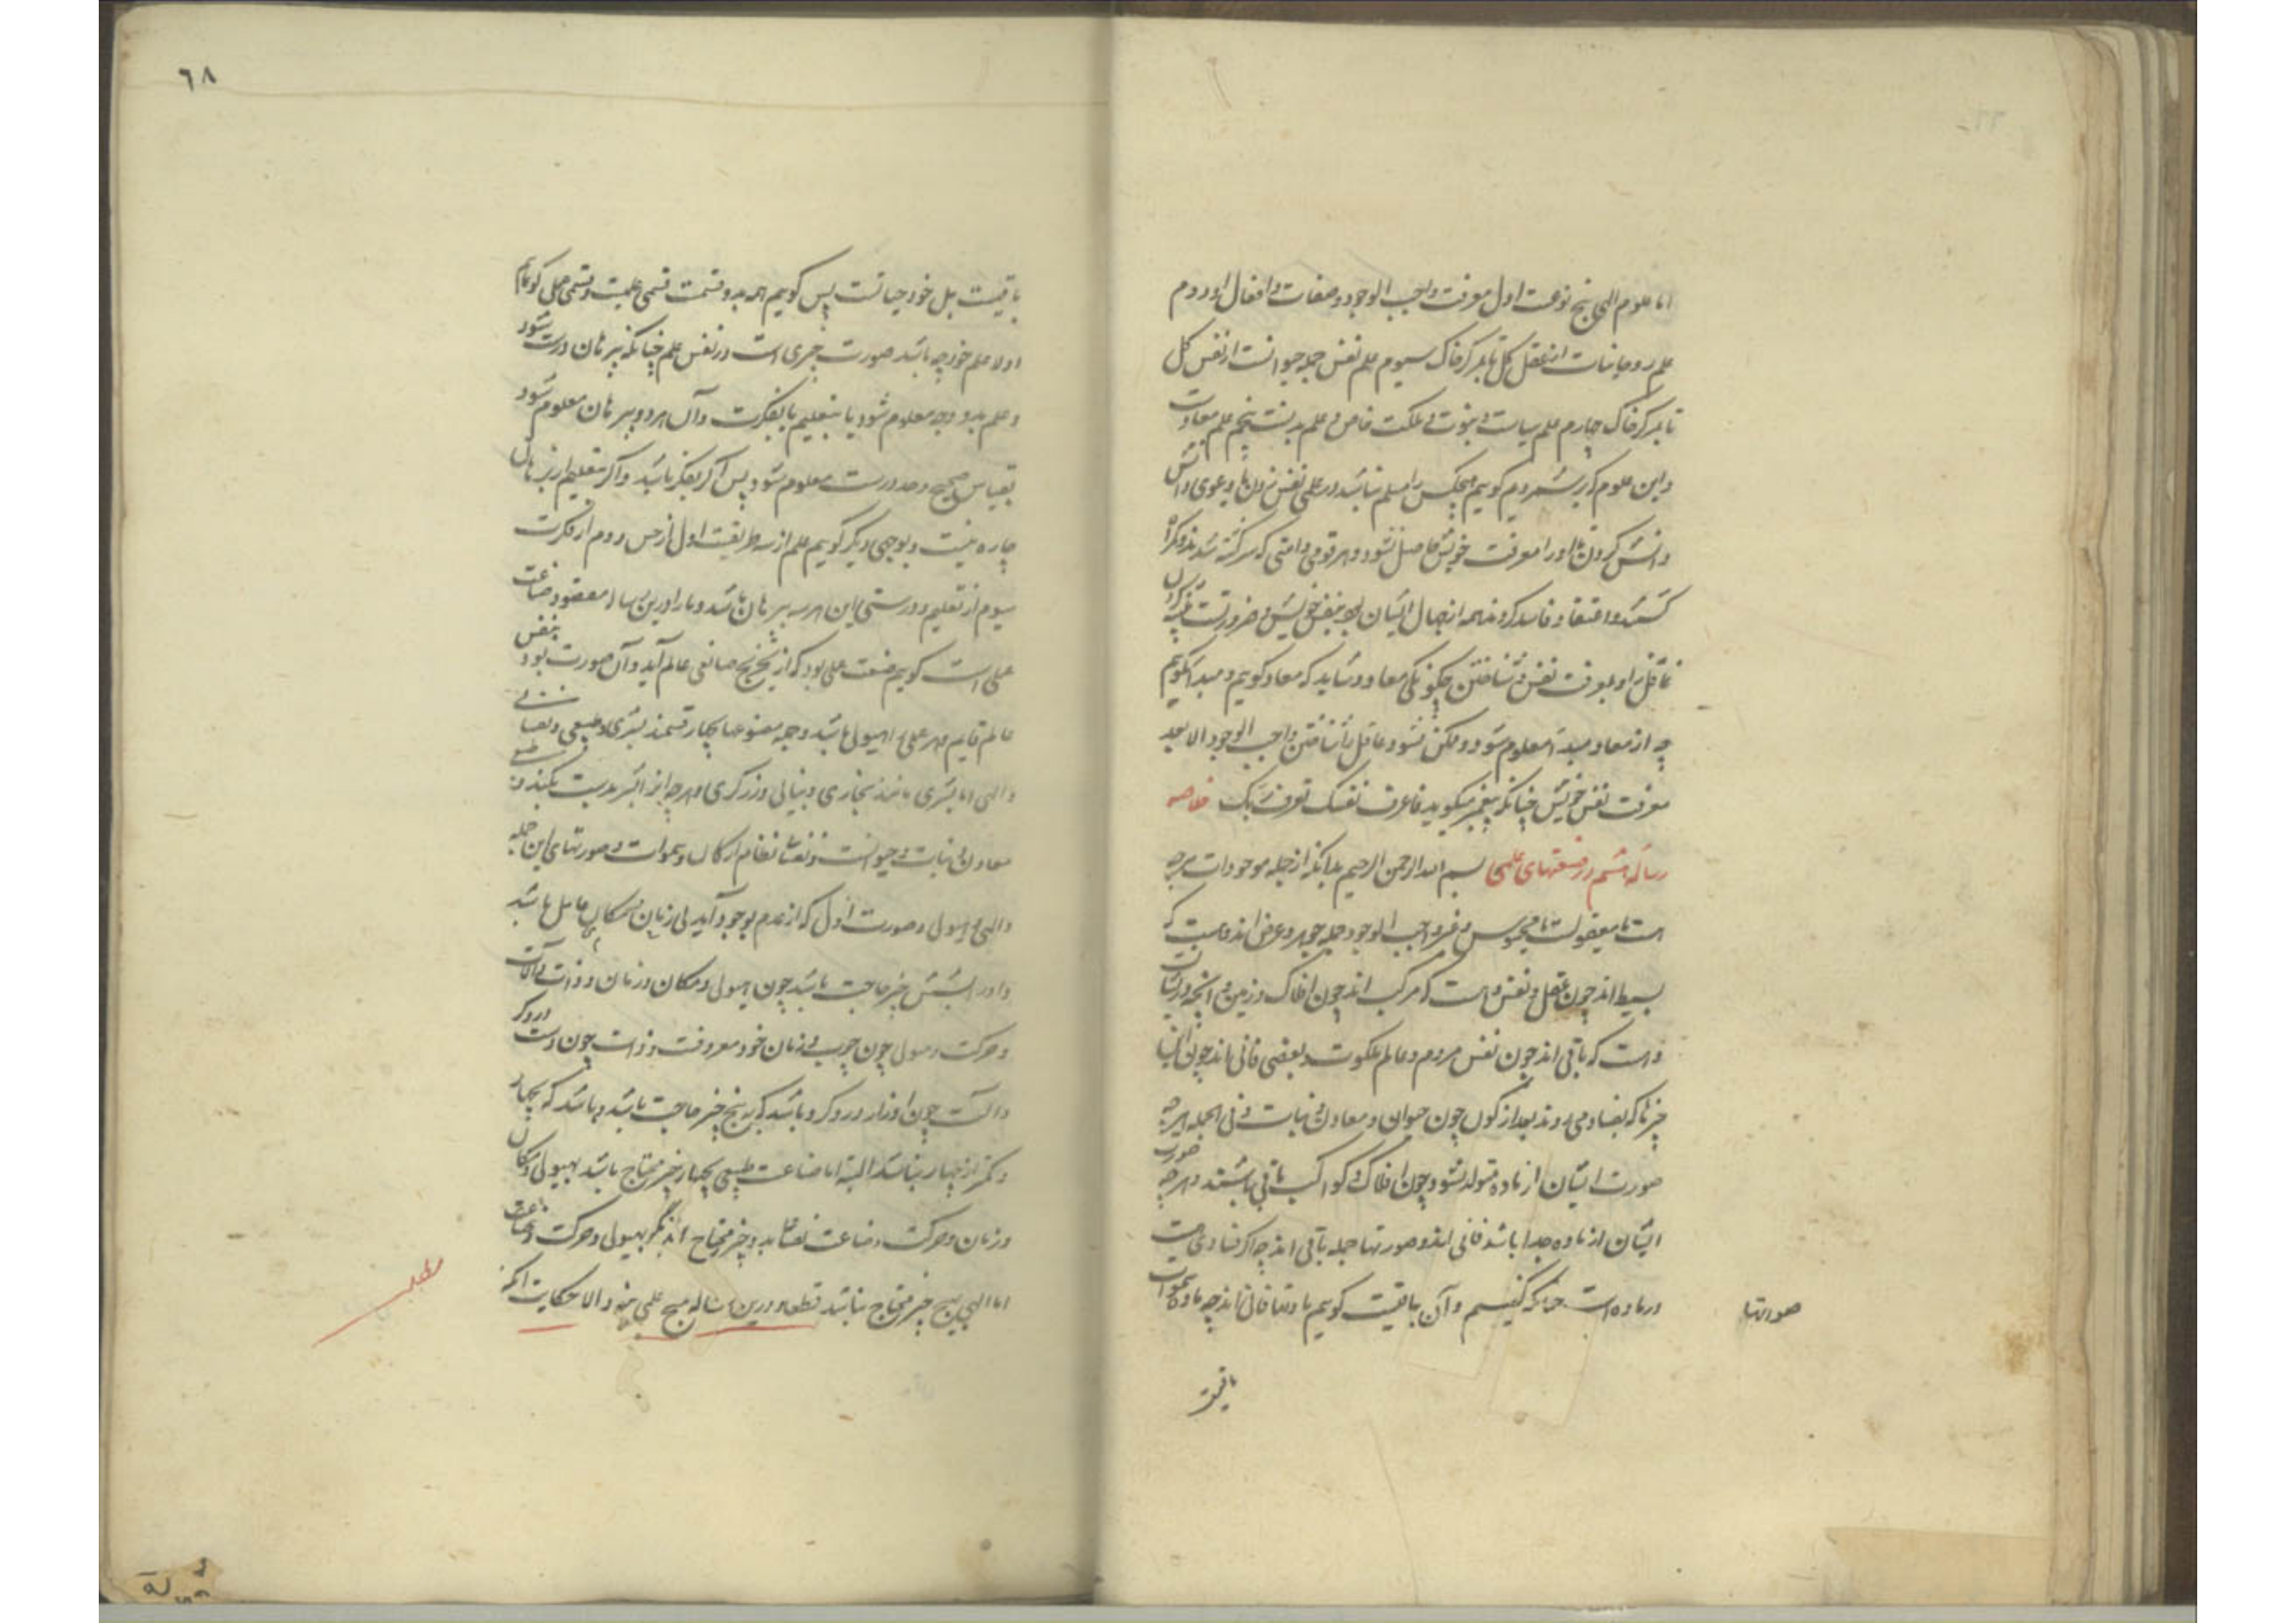 اما علوم الهی پنج نوعست اول معرفت واجب الوجود و صفات و افعال او دوم
علم روحانیات از عقل کل تا بمرکز خاک سیوم علم نفس جمله حیوانست از نفس کل
تا بمرکز خاک چهارم علم سیاست و نبوت و مملکت خاص و علم مدنست پنجم علم معادست
و این علوم که برشمردیم کوییم هیچکس را مسلم نباشد در علمی نفس زدن یا دعوی دانش
دانش کردن تا او را معرفت خویش حاصل نشود و هر قومی و امتی که سرکشته شدند و کمراه
کشتند و اعتقاد فاسد کردند همه از جهال ایشان بود بنفس خویش و ضرورتست
عاقل را و معرفت نفس و شناختن چکونکی معاد و شاید که معاد کوییم و مبدا کوییم
چه از معاد مبدا معلوم شود و ممکن نشود عاقل را شناختن واجب الوجود الا بعد
معرفت نفس خویش چنانکه پیغمبر میکوید فاعرف نفسک تعرف ربک خلاصه
رساله هشتم در صنعتهای علمی بسم الله الرحمن الرحیم بدانکه از جمله موجودات هرچه
هست یا معقولست یا محسوس و غیر واجب الوجود جمله جوهر و عرض اند و هست که
بسیط اند چون عقل و نفس و هست که مرکب اند چون افلاک و زمین و آنچه دریشانست
و هست که باقی اند چون نفس مردم و عالم ملکوت و بعضی فانی اند چون این
چیزها که بفساد می روند بعد از کون چون حیوان و معادن و نبات و فی الجمله هرچه
صورت
صورت ایشان از ماده متولد نشود چون افلاک و کواکب باقی باشند و هرچه
ایشان از ماده جدا باشد فانی اند و صورتها جمله باقی اند چه اکر فسادی هست
در ماده است چنانکه کفتیم و آن باقیست کوییم مادتها فانی اند چه ماده سموات
صورتها
باقیست
٦٨
باقیست بل خود حیاتست پس کوییم همه بدو قسمت قسمی علمیست و قسمی عملی کوییم
اولا علم خود چه باشد صورت چیزی است در نفس علم چنانکه ببرهان درست شود
و علم بدو وجه معلوم شود یا بتعلیم یا بفکرت و آن هر دو ببرهان معلوم شود
بقیاس صحیح و حد درست معلوم شود پس اکر بفکر باشد و اکر بتعلیم از برهان
چاره نیست و بوجهی دیکر کوییم علم از سه طریقست اول از حس دوم از فکرت
سیوم از تعلیم و درستی این هر سه ببرهان باشد و ما را درین رساله مقصود صناعت
علمی است کوییم صنعت علمی بود که از صانعی عالم آید و آن صورت بود بنفس
عالم قایم و هر عملی را هیولی باشد و جمله مصنوعها بچهار قسمند بشری و طبیعی و نفسانی
و الهی اما بشری مانند نجاری و بنایی و زرکری و هرچه ابناء بشر بدست بکنند و طبیعی
معادن و نبات و حیوانست و نفسانی نظام ارکان و سموات و صورتهای این جمله
و الهی هیولی و صورت اول که از عدم بوجود آید بی زمان و مکان حاصل باشد
و اور بشش چیز حاجت باشد چون هیولی و مکان و زمان و ذات و آلات
و حرکت هیولی چون چوب و زمان خود معروفست و ذات چون دست درودکر
و آلت چون اوزار درودکر و باشد که به پنج چیز حاجت باشد و باشد که بچهار
و کمتر از چهار نباشد البته اما صناعت طبیعی بچهار چیز محتاج باشد بهیولی و مکان
و زمان و حرکت و صناعت نفسانی بدو چیز محتاج اند مکر بهیولی و حرکت و صناعت
اما الهی بهیچ چیز محتاج نباشد قطعا و درین رساله هیچ علمی نبود الا حکایت آنکه
مطلب